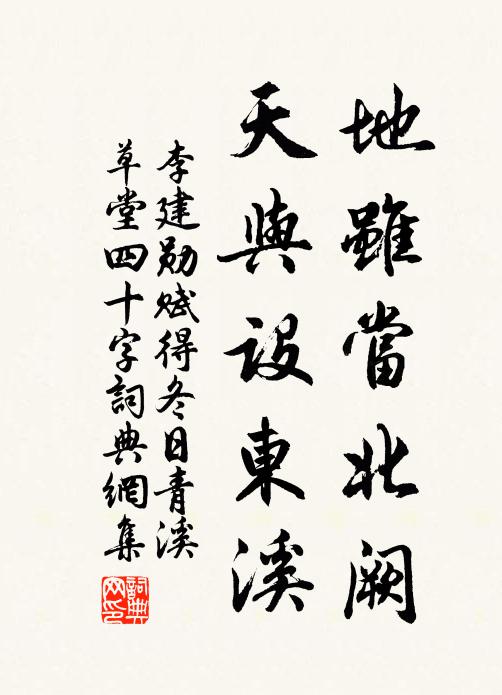 地雖當北闕
天與設東溪
李建勛賦得冬日青溪
草堂四十字詞典網集
詞典网印